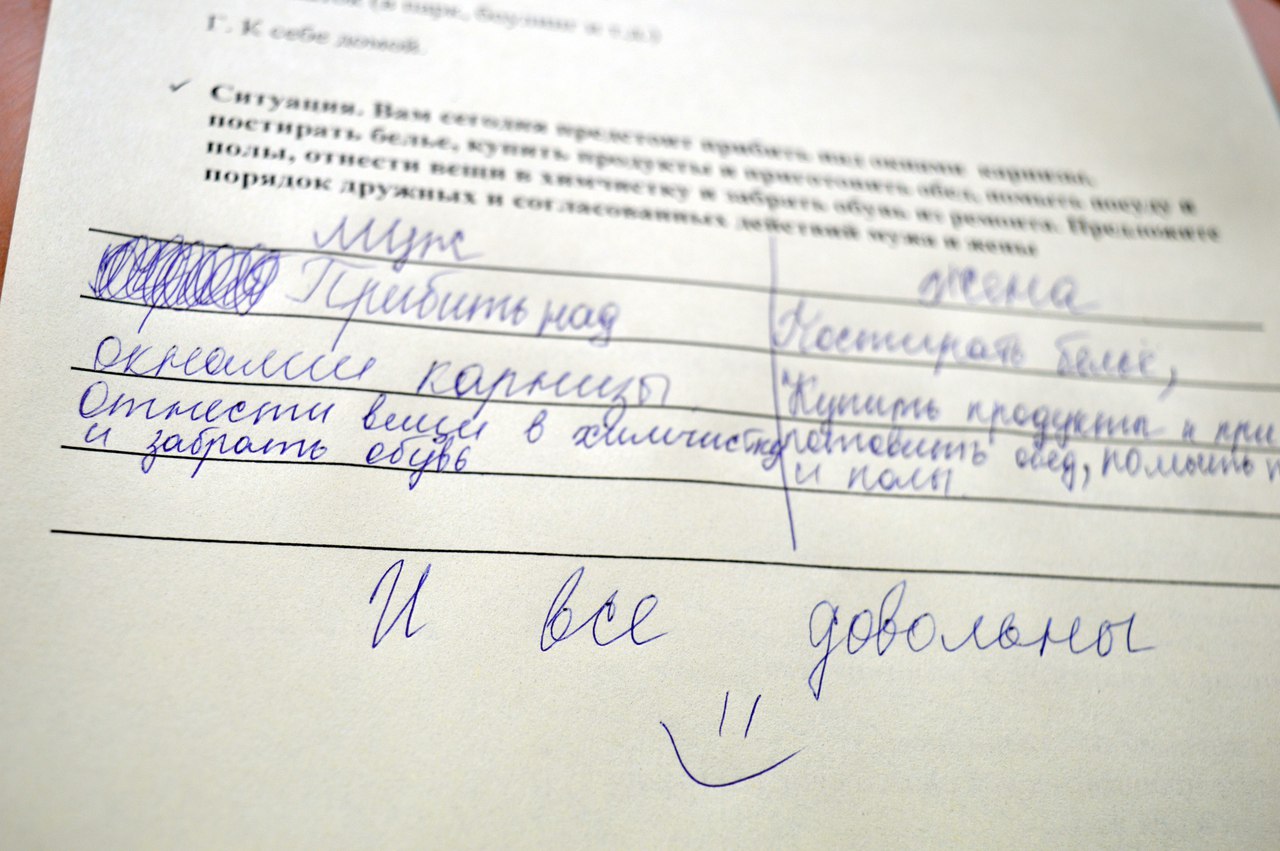 (в парк, боулинг и т.д.)
Г. К себе домой.
✓ Ситуация. Вам сегодня предстоит прибить над окнами карнизы,
постирать белье, купить продукты и приготовить обед, помыть посуду и
полы, отнести вещи в химчистку и забрать обувь из ремонта. Предложите
порядок дружных и согласованных действий мужа и жены
Муж
жена
Прибить над
окнами карнизы.
Отнести вещи в химчистку
и забрать обувь
Постирать бельё,
Купить продукты и при
готовить обед, помыть п
и полы.
И все довольны